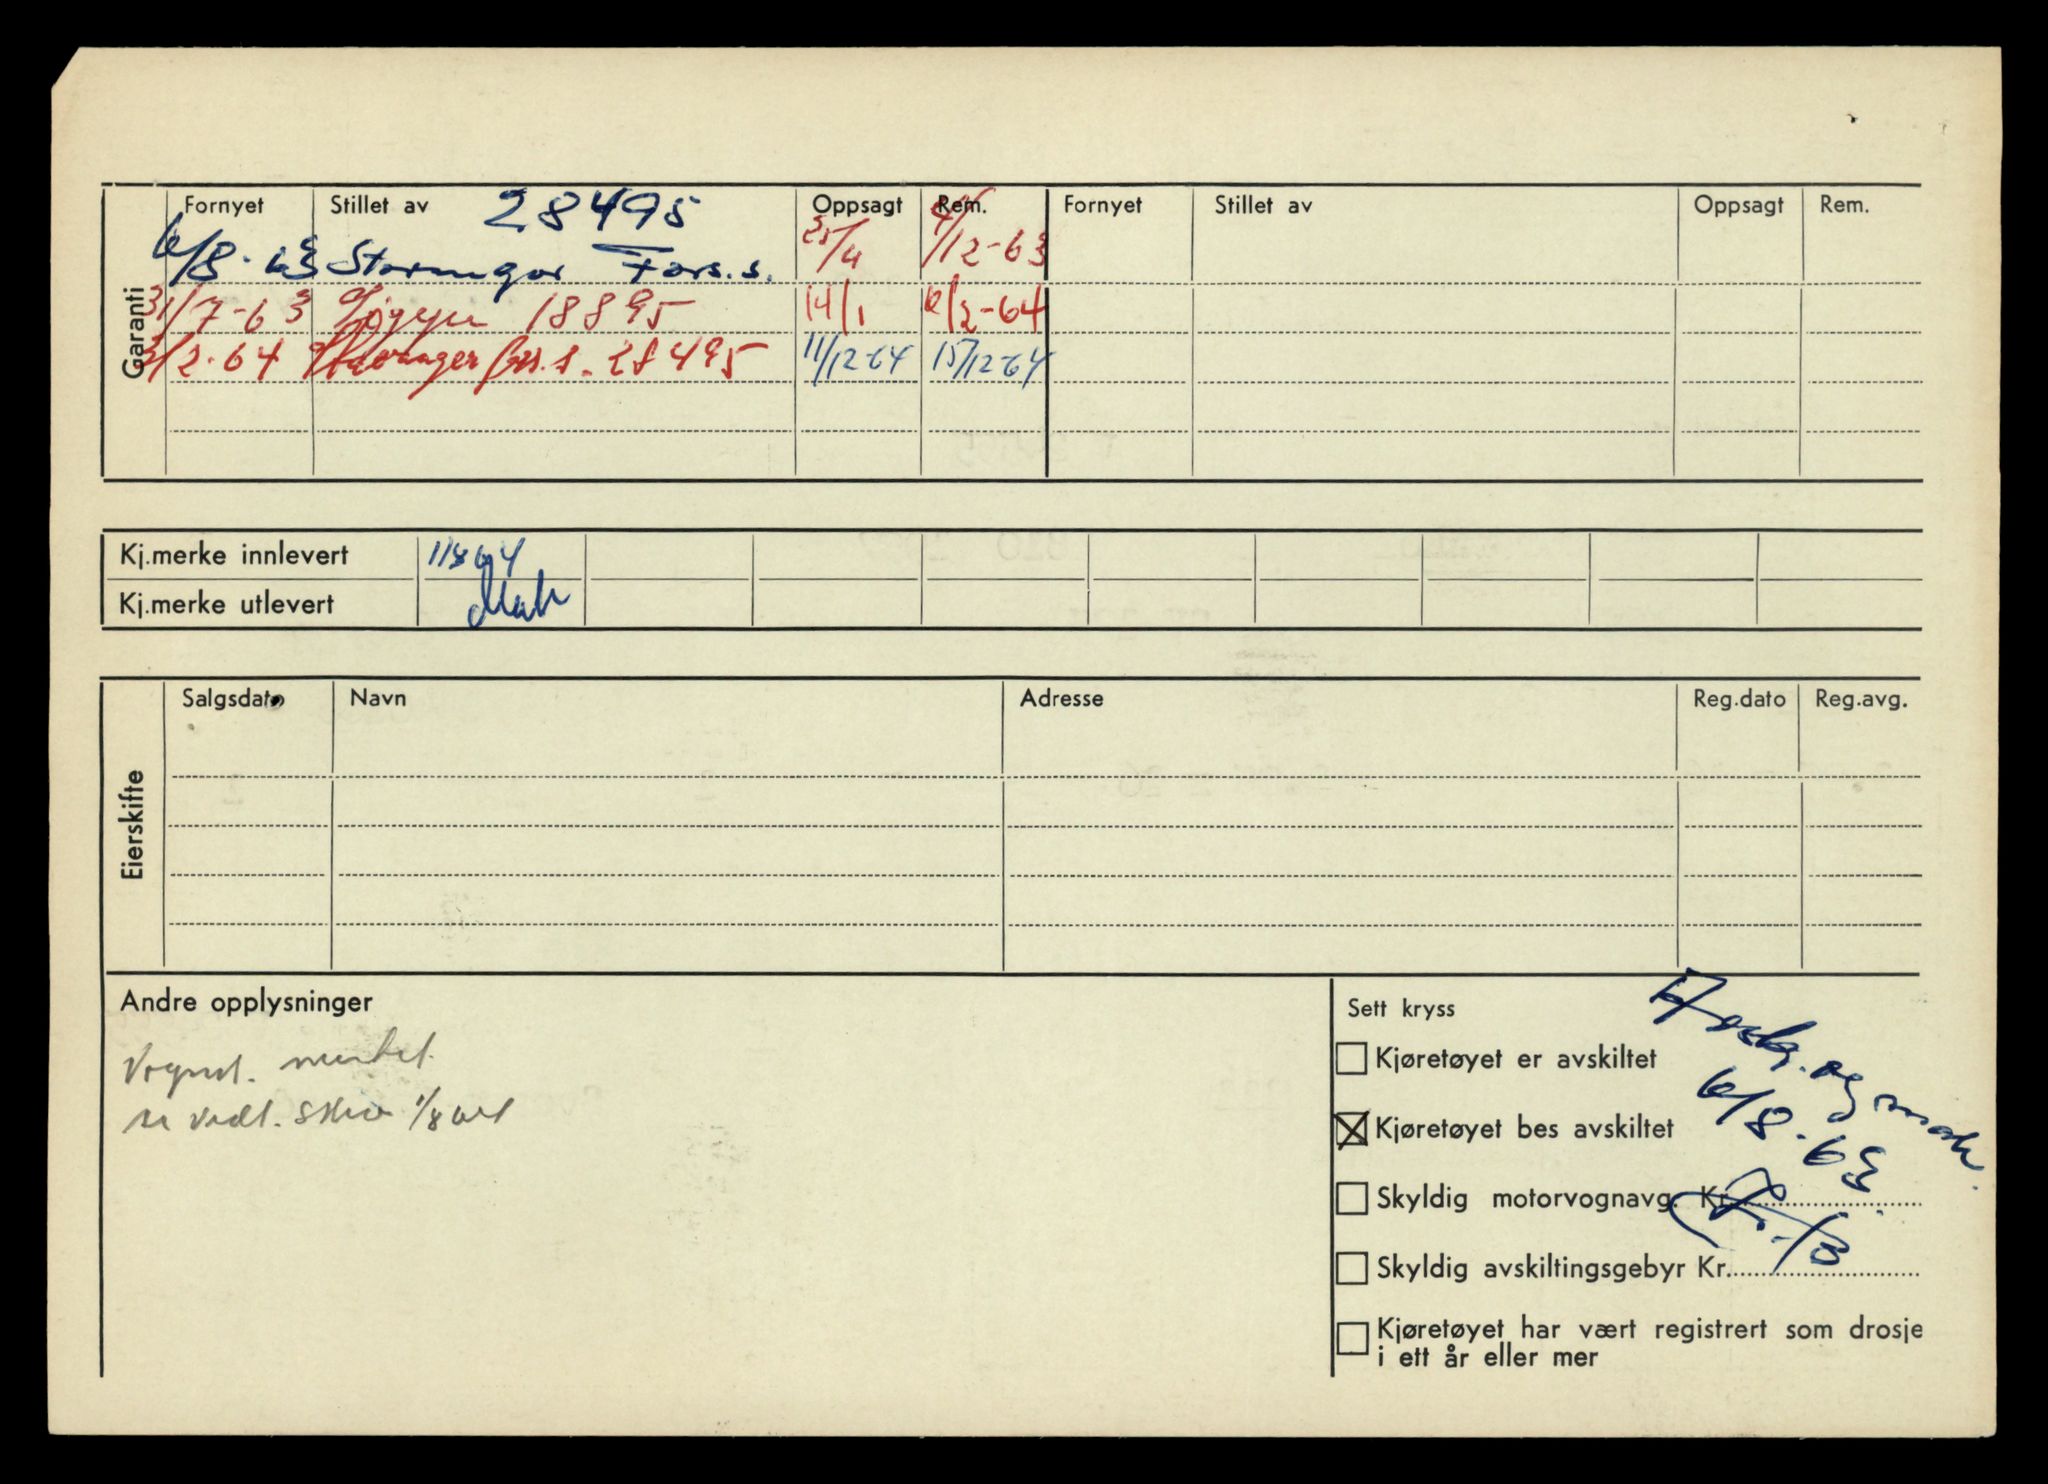 Fornyet Stillet av 28495 Oppsagt Rem. Fornyet Stillet av Oppsagt Rem.
6/8-63 Stavanger Fors.s. 25/4 4/12-63
Garanti
31/7-63 18895 14/1 12/2-64
3/2-64 Stavanger fors.s. 28495 11/12-64 15/12-64
Kj.merke innlevert 11864
Kj.merke utlevert
Salgsdato Navn Adresse Reg.dato Reg.avg.
Eierskifte
Andre opplysninger
Vognst. merket
1/8
Sett kryss
Kjøretøyet er avskiltet
og
6/8-63
Kjøretøyet bes avskiltet
Skyldig motorvognavg. Kr.
Skyldig avskiltingsgebyr Kr.
Kjøretøyet har vært registrert som drosje
i ett år eller mer